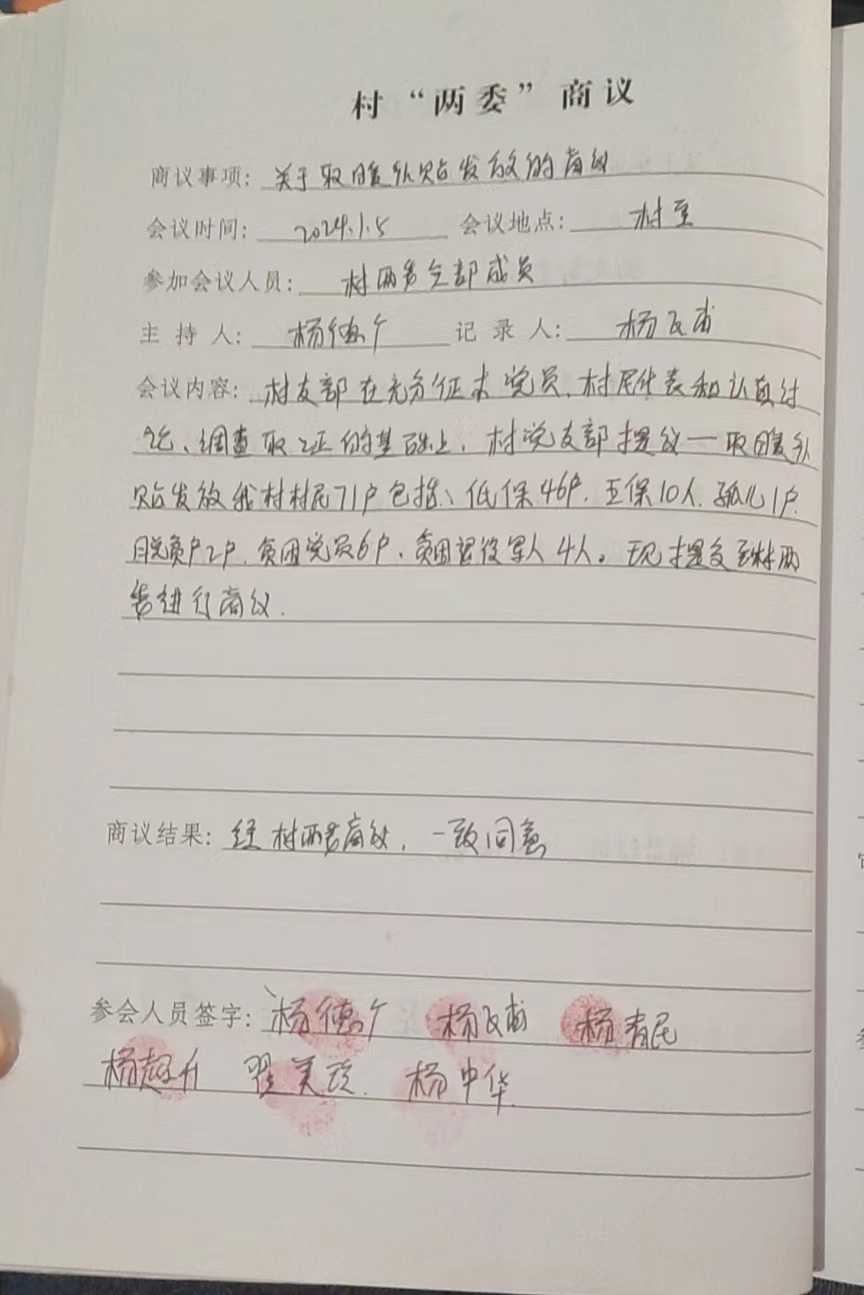 村“两委”商议
商议事项：关于取暖补贴发放的商议
会议时间：2024.1.5 会议地点：村室
参加会议人员：村两委全部成员
主持人：杨德 记录人：杨
会议内容：村支部在充分征求党员、村民代表和认真讨
论、调查取证的基础上，村党支部提议一取暖补
贴发放我村村民71户包括、低保46户，五保10人，孤儿1户
脱贫户2户，贫困党员6户、贫困退役军人4人。现提交至村两
委进行商议.
商议结果：经村两委商议，一致同意
参会人员签字：杨德 杨 杨青民
杨超升 翟美玲. 杨中华.